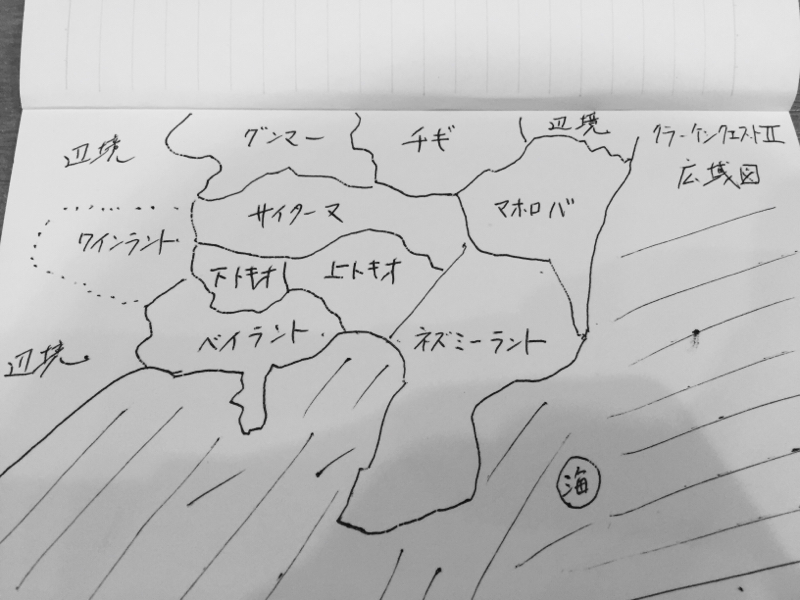 辺境
グンマー
チギ
辺境
クラーケンクエストⅡ
広域図
ワインランド
サイターマ
マホロバ
下トキオ
上トキオ
ベイラント
ネズミーラント
辺境
海